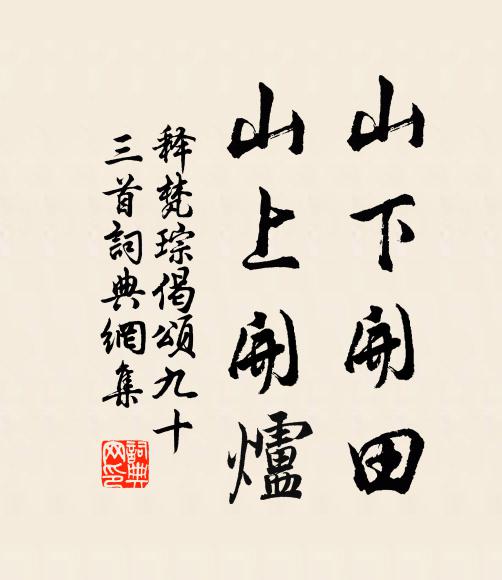 山下開田
山上開爐
释梵琮偈頌九十
三首詞典網集
詞典
网印